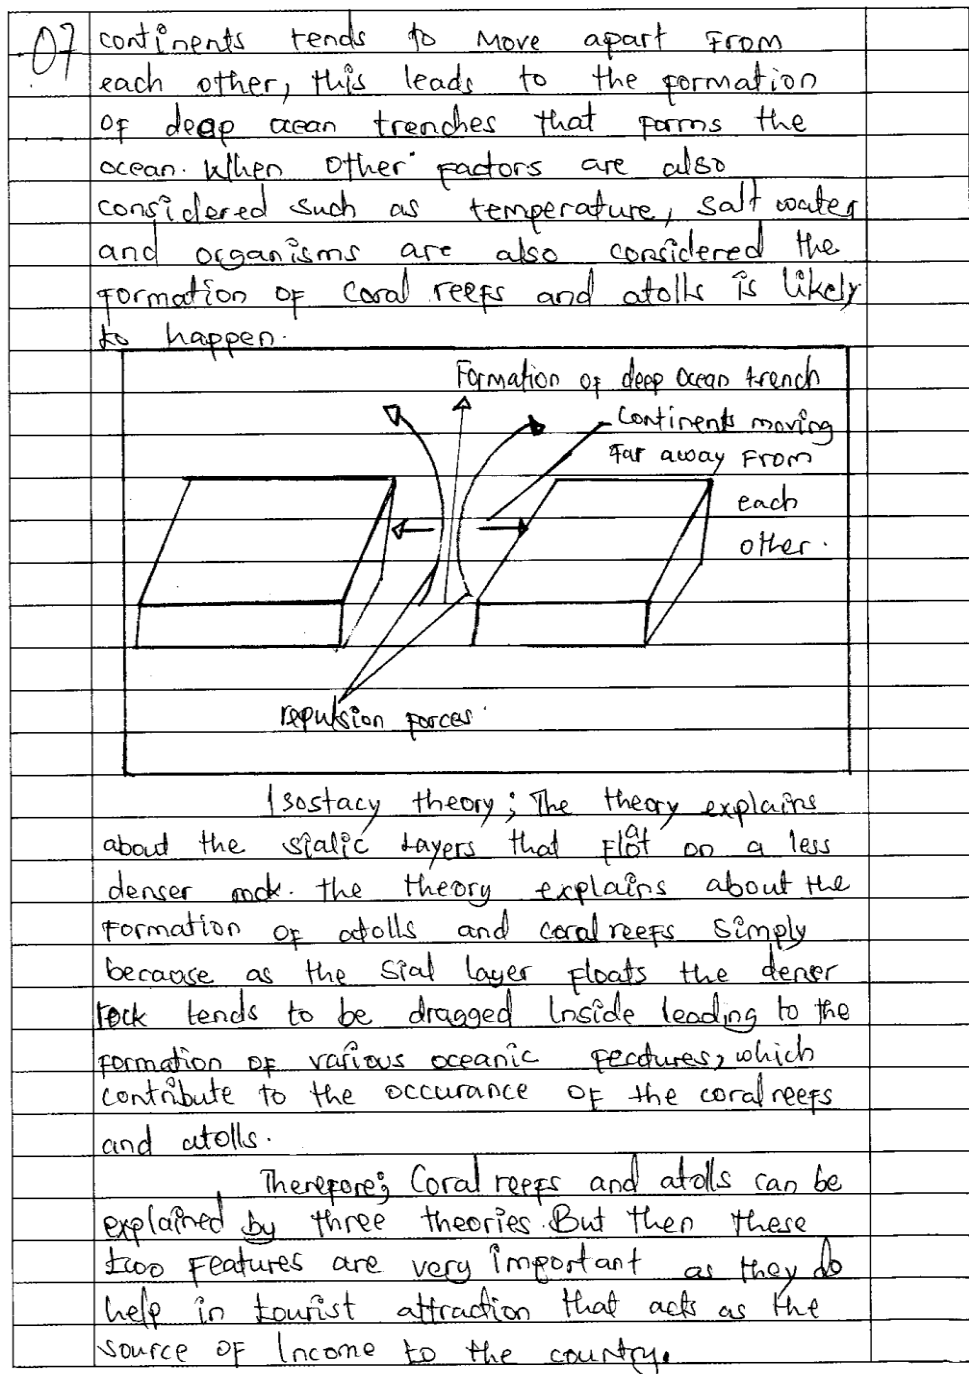 07 continents tends to move apart from
each other, this leads to the formation
of deep ocean trenches that forms the
ocean. When other factors are also
considered such as temperature, salt water
and organisms are also considered the
formation of coral reefs and atolls is likely
to happen.
Formation of deep ocean trench
continents moving
far away from
each
other.
repulsion forces.
Isostacy theory; The theory explains
about the sialic layers that float on a less
denser rock. the theory explains about the
formation of atolls and coral reefs simply
because as the sial layer floats the denser
rock tends to be dragged inside leading to the
formation of various oceanic features, which
contribute to the occurance of the coral reefs
and atolls.
Therefore; Coral reefs and atolls can be
explained by three theories. But then these
two features are very important as they do
help in tourist attraction that acts as the
source of income to the country.